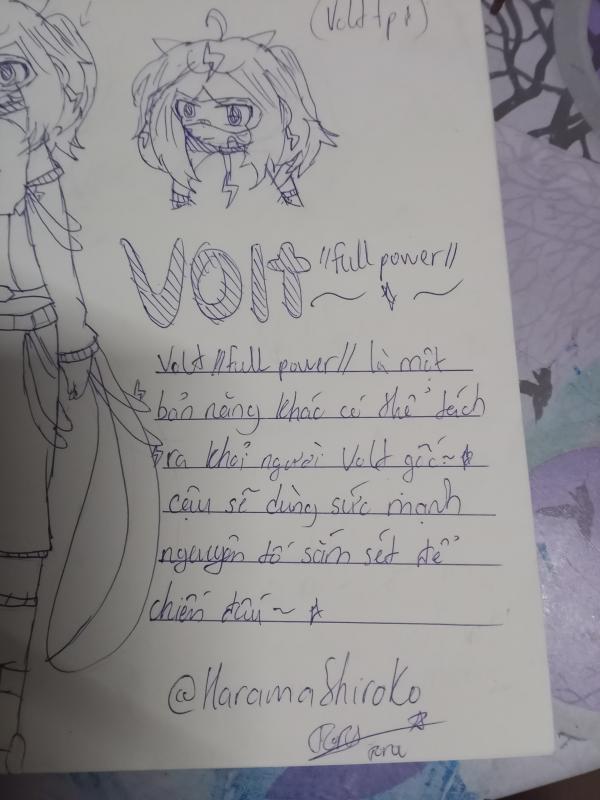 (Volt tp 1)
VOlt //full power//
Volt //full power// là một
bản năng khác có thể tách
ra khỏi người Volt gốc~
cậu sẽ dùng sức mạnh
nguyên tố sấm sét để
chiến đấu~
@HaramaShiroko